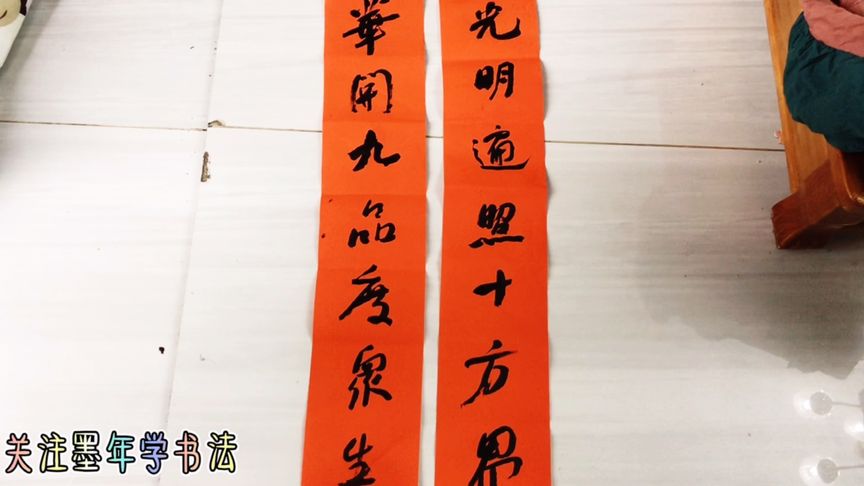 光明遍照十方界
華開九品度衆生
关注墨年学书法